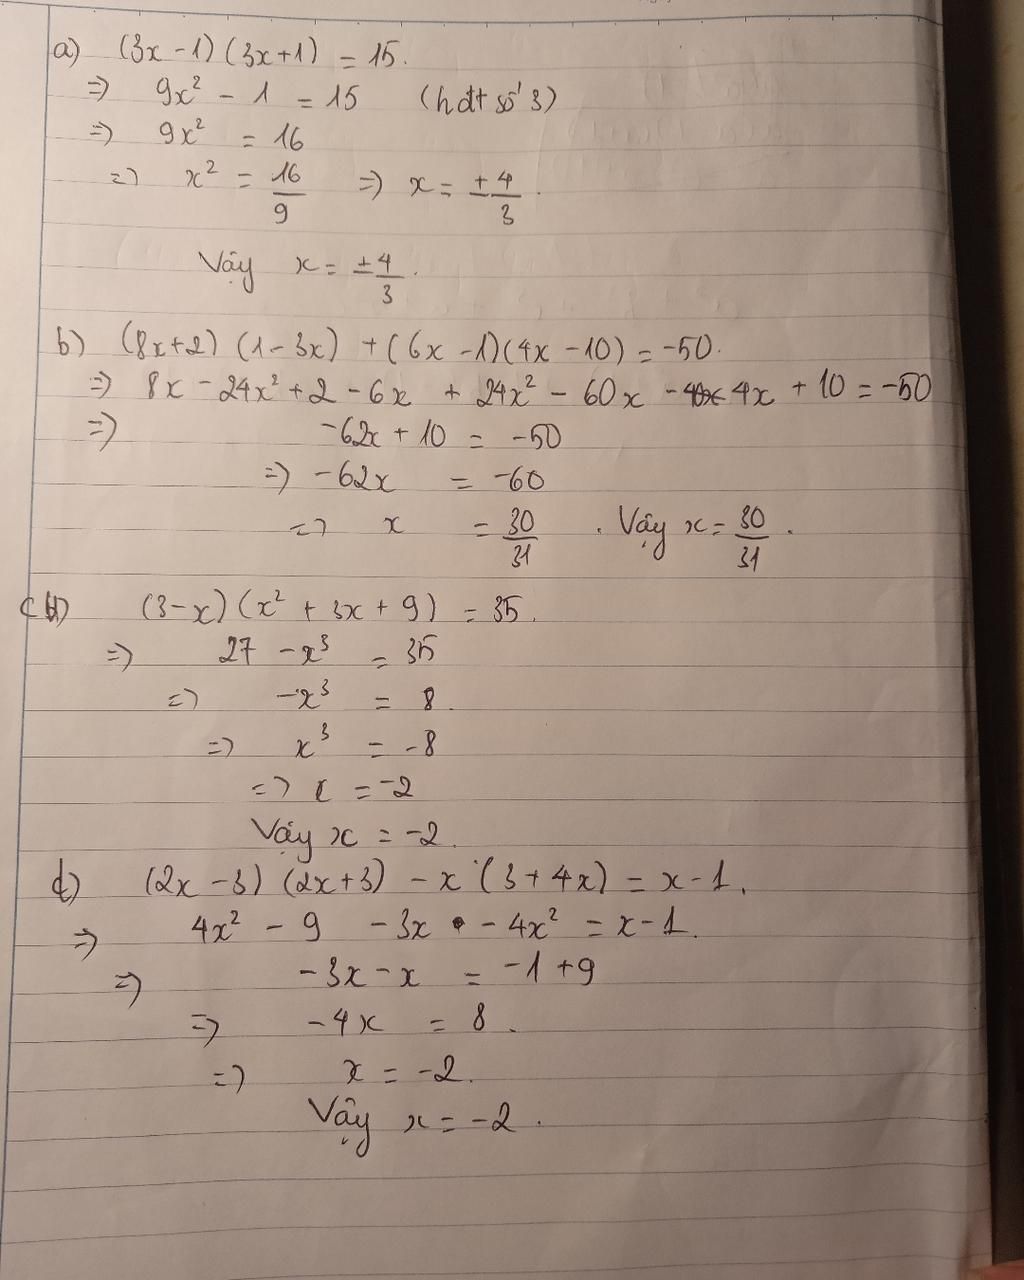 a) (3x - 1)(3x + 1) = 15.
=> 9x² - 1 = 15 (hđt số 3)
=> 9x² = 16
=> x² = 16/9 => x = ±4/3.
Vậy x = ±4/3.
b) (8x + 2)(1 - 3x) + (6x - 1)(4x - 10) = -50.
=> 8x - 24x² + 2 - 6x + 24x² - 60x - 4x + 10 = -50
=> -62x + 10 = -50
=> -62x = -60
=> x = 30/31. Vậy x = 30/31.
c) (3 - x)(x² + 3x + 9) = 35.
=> 27 - x³ = 35
=> -x³ = 8.
=> x³ = -8
=> x = -2
Vậy x = -2.
d) (2x - 3)(2x + 3) - x·(3 + 4x) = x - 1.
=> 4x² - 9 - 3x - 4x² = x - 1.
=> -3x - x = -1 + 9
=> -4x = 8.
=> x = -2.
Vậy x = -2.